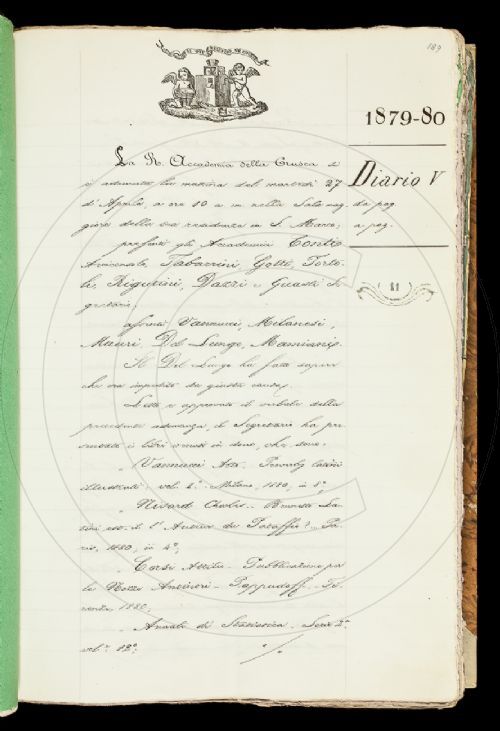 189
1879-80
Diario V
da pag.
a pag.
11
La R. Accademia della Crusca si
è adunata la mattina del martedì 27
d'Aprile, a ore 10 a m nella Sala mag
giore della sua residenza in S. Marco;
presenti gli Accademici Conti
Arciconsolo, Tabarrini, Gotti, Torto-
li, Rigutini, Dazzi e Guasti Se
gretario;
assenti Vannucci, Milanesi,
Mauri, Del Lungo, Mamiani.
Il Del Lungo ha fatto sapere
che era impedito da giusta causa.
Letto e approvato il verbale della
precedente adunanza, il Segretario ha pre
sentato i libri venuti in dono, che sono:
Vannucci Atto. Proverbi latini
illustrati; vol. 1880, in 8°;
Nisard Charles. Brunetto La-
tini est-il l'Auteur du Pataffio? Pa
ris, 1880, in
Corsi Attilio Pubblicazione per
le Nozze Papudoff. Fi
renze, 1880;
Annali di Statistica. Serie 2ª
vol.° 12°.